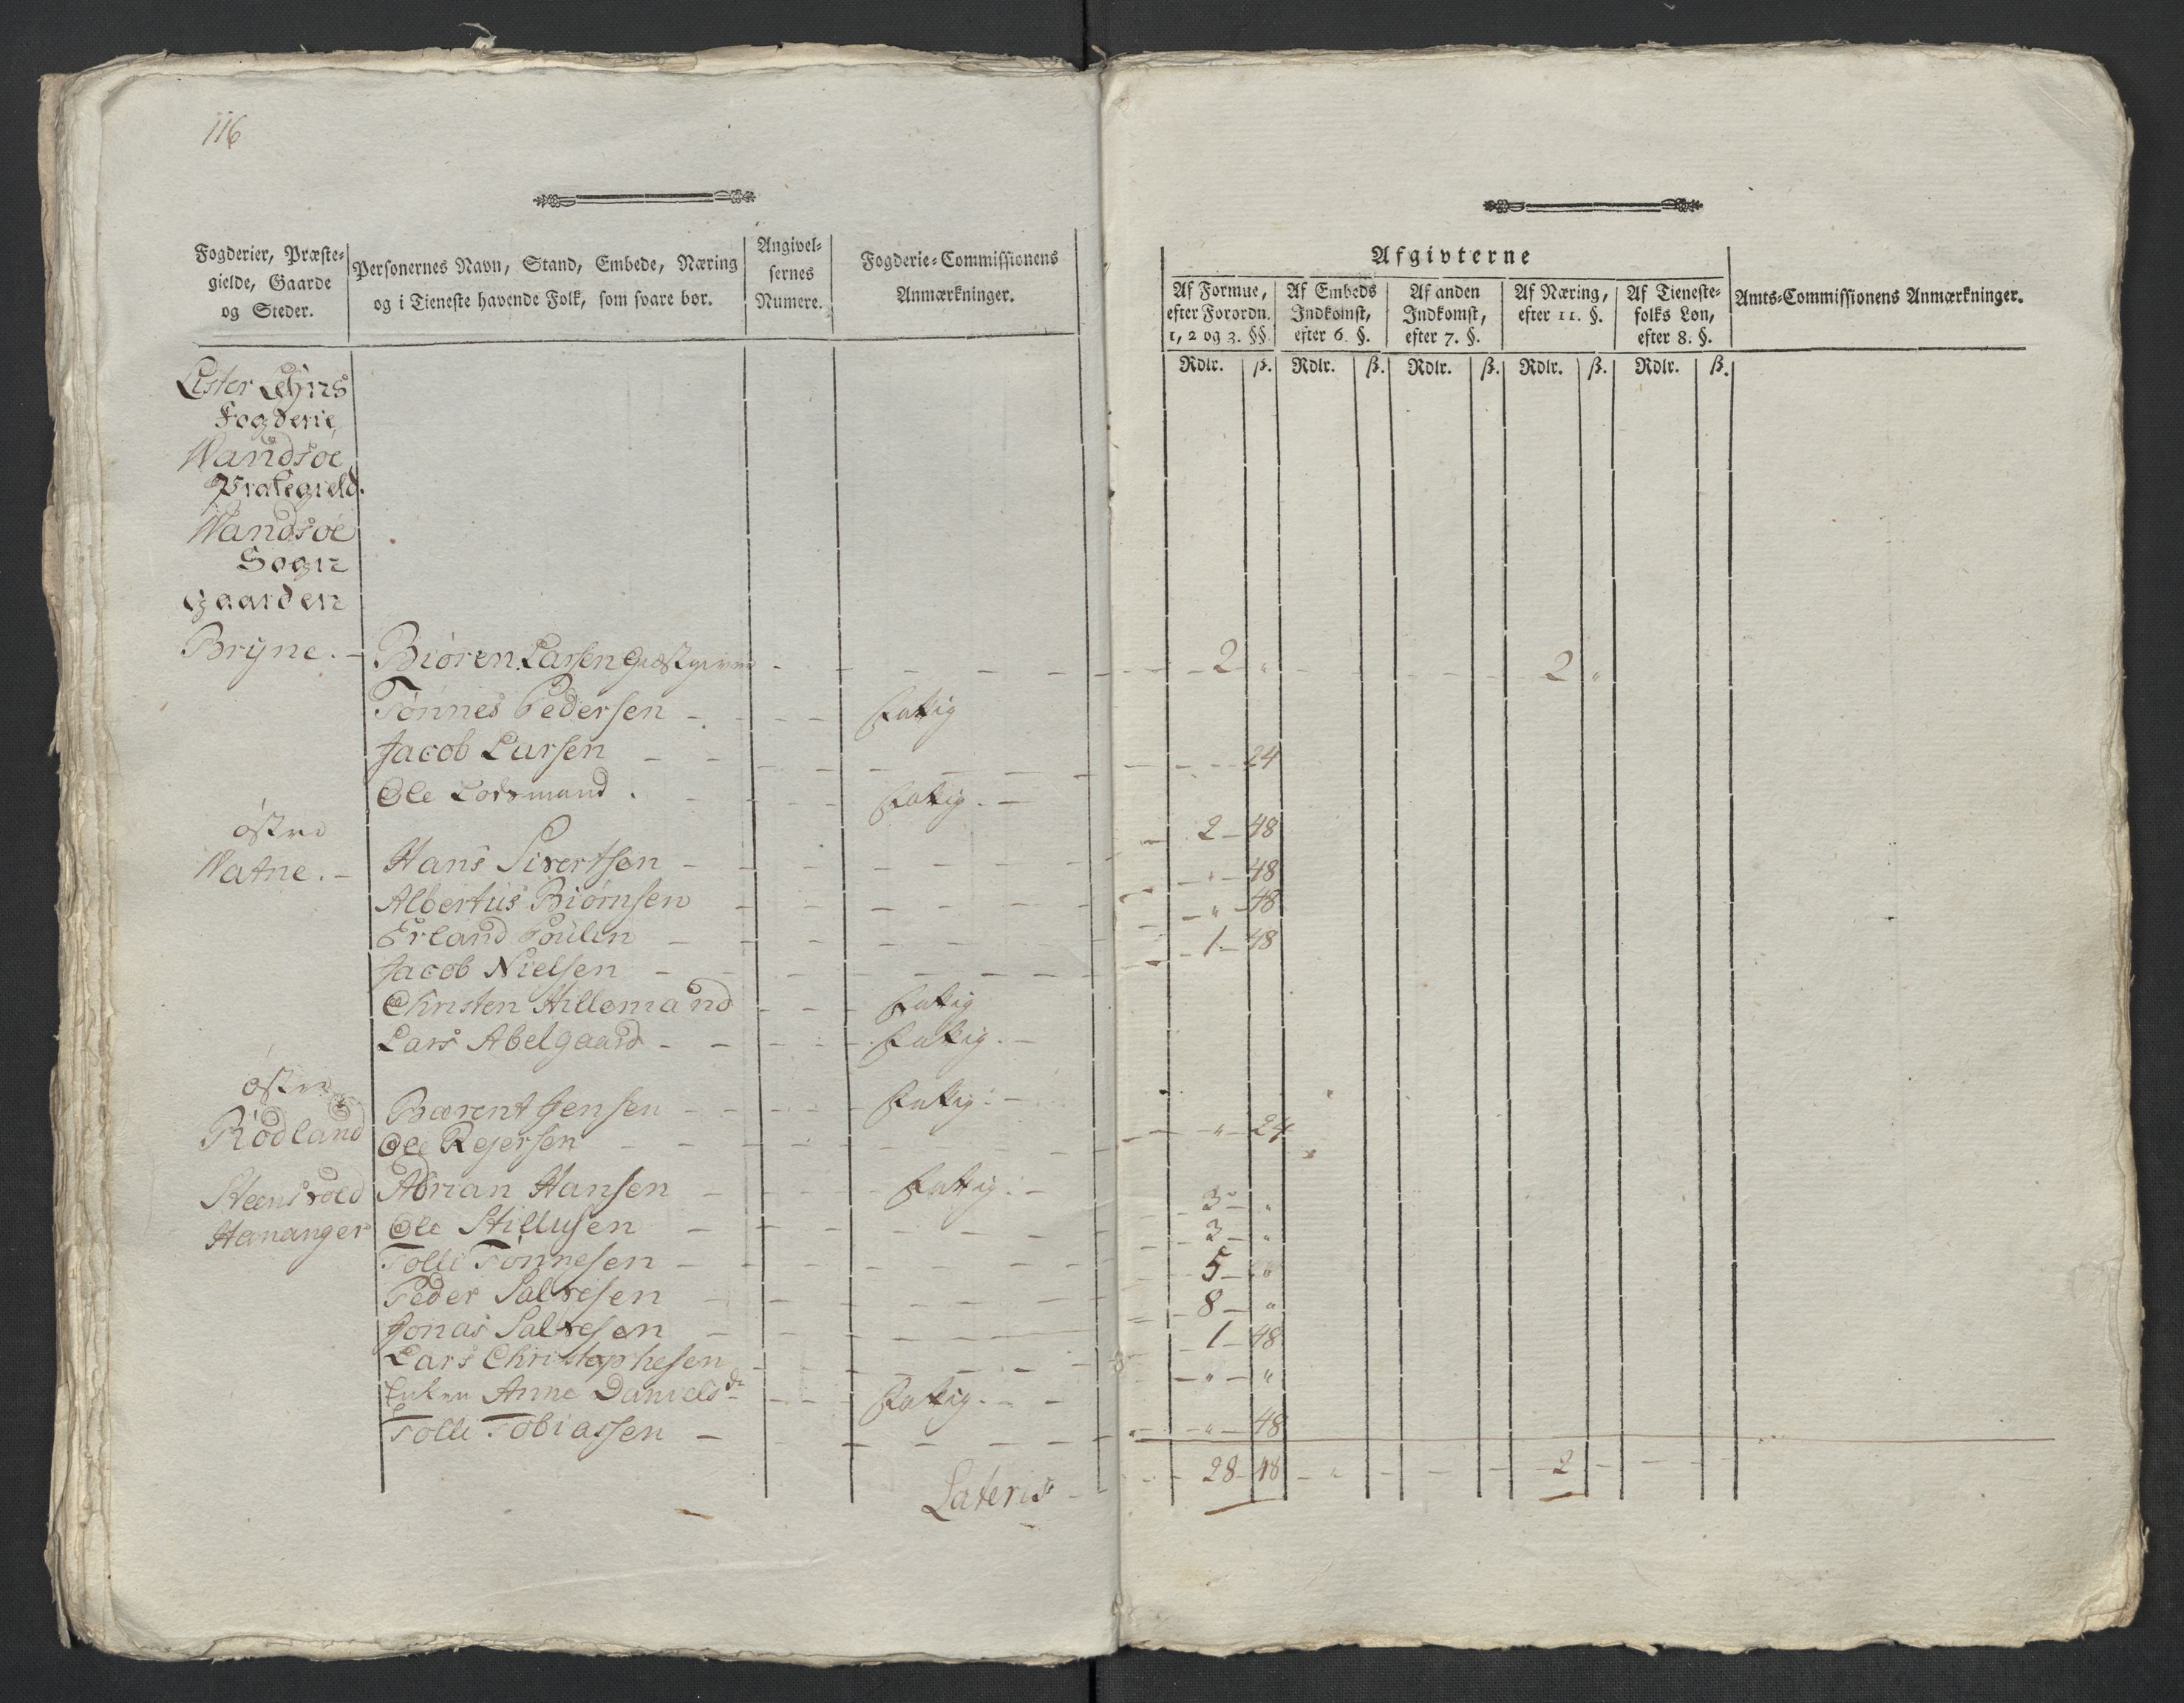 116
Fogderier, Præste-
gielde, Gaarde
og Steder.
Personernes Navn, Stand, Embede, Næring
og i Tieneste havende Folk, som svare bør.
Angivel-
sernes
Numere.
Fogderie-Commissionens
Anmærkninger.
Afgivterne
Af Formue,
efter Forordn.
1, 2 og 3. §§.
Af Embeds
Indkomst,
efter 6. §.
Af anden
Indkomst,
efter 7. §.
Af Næring,
efter 11. §.
Af Tieneste-
folks Løn,
efter 8. §.
Amts-Commissionens Anmærkninger.
Rdlr. ß. Rdlr. ß. Rdlr. ß. Rdlr. ß. Rdlr. ß.
Lister Lehns
Fogderie
Wandsøe
Præstegield.
Wandsøe
Sogn
Gaarden
Brÿne. - Biøren Larsen Giæstgiver - 2 " 2 "
Tønnes Pedersen - Fattig
Jacob Larsen - 24
Ole Lodsmand . Fattig. -
østre
Watne. - Hans Sivertsen - 2 - 48
Albertus Biørnsen - " 48
Erland Poulen - " 48
Jacob Nielsen - 1 - 48
Christen Hillemand - Fattig
Lars Abelgaard - Fattig. -
østre
Rødland Bærent Jensen - Fattig. -
Ole Rejersen - " 24
Steensvold Adrian Hansen - Fattig. -
Hananger Ole Stillufsen - 3 - "
Tolli Tønnesen - 3 - "
Peder Salvesen - 5 - "
Jonas Salvesen - 8 - "
Lars Christophesen - 1 - 48
Enken Anne Daniels dr - Fattig. - " - "
Tolli Tobiassen - " 48
Lateris - 28 - 48 - " - 2 -